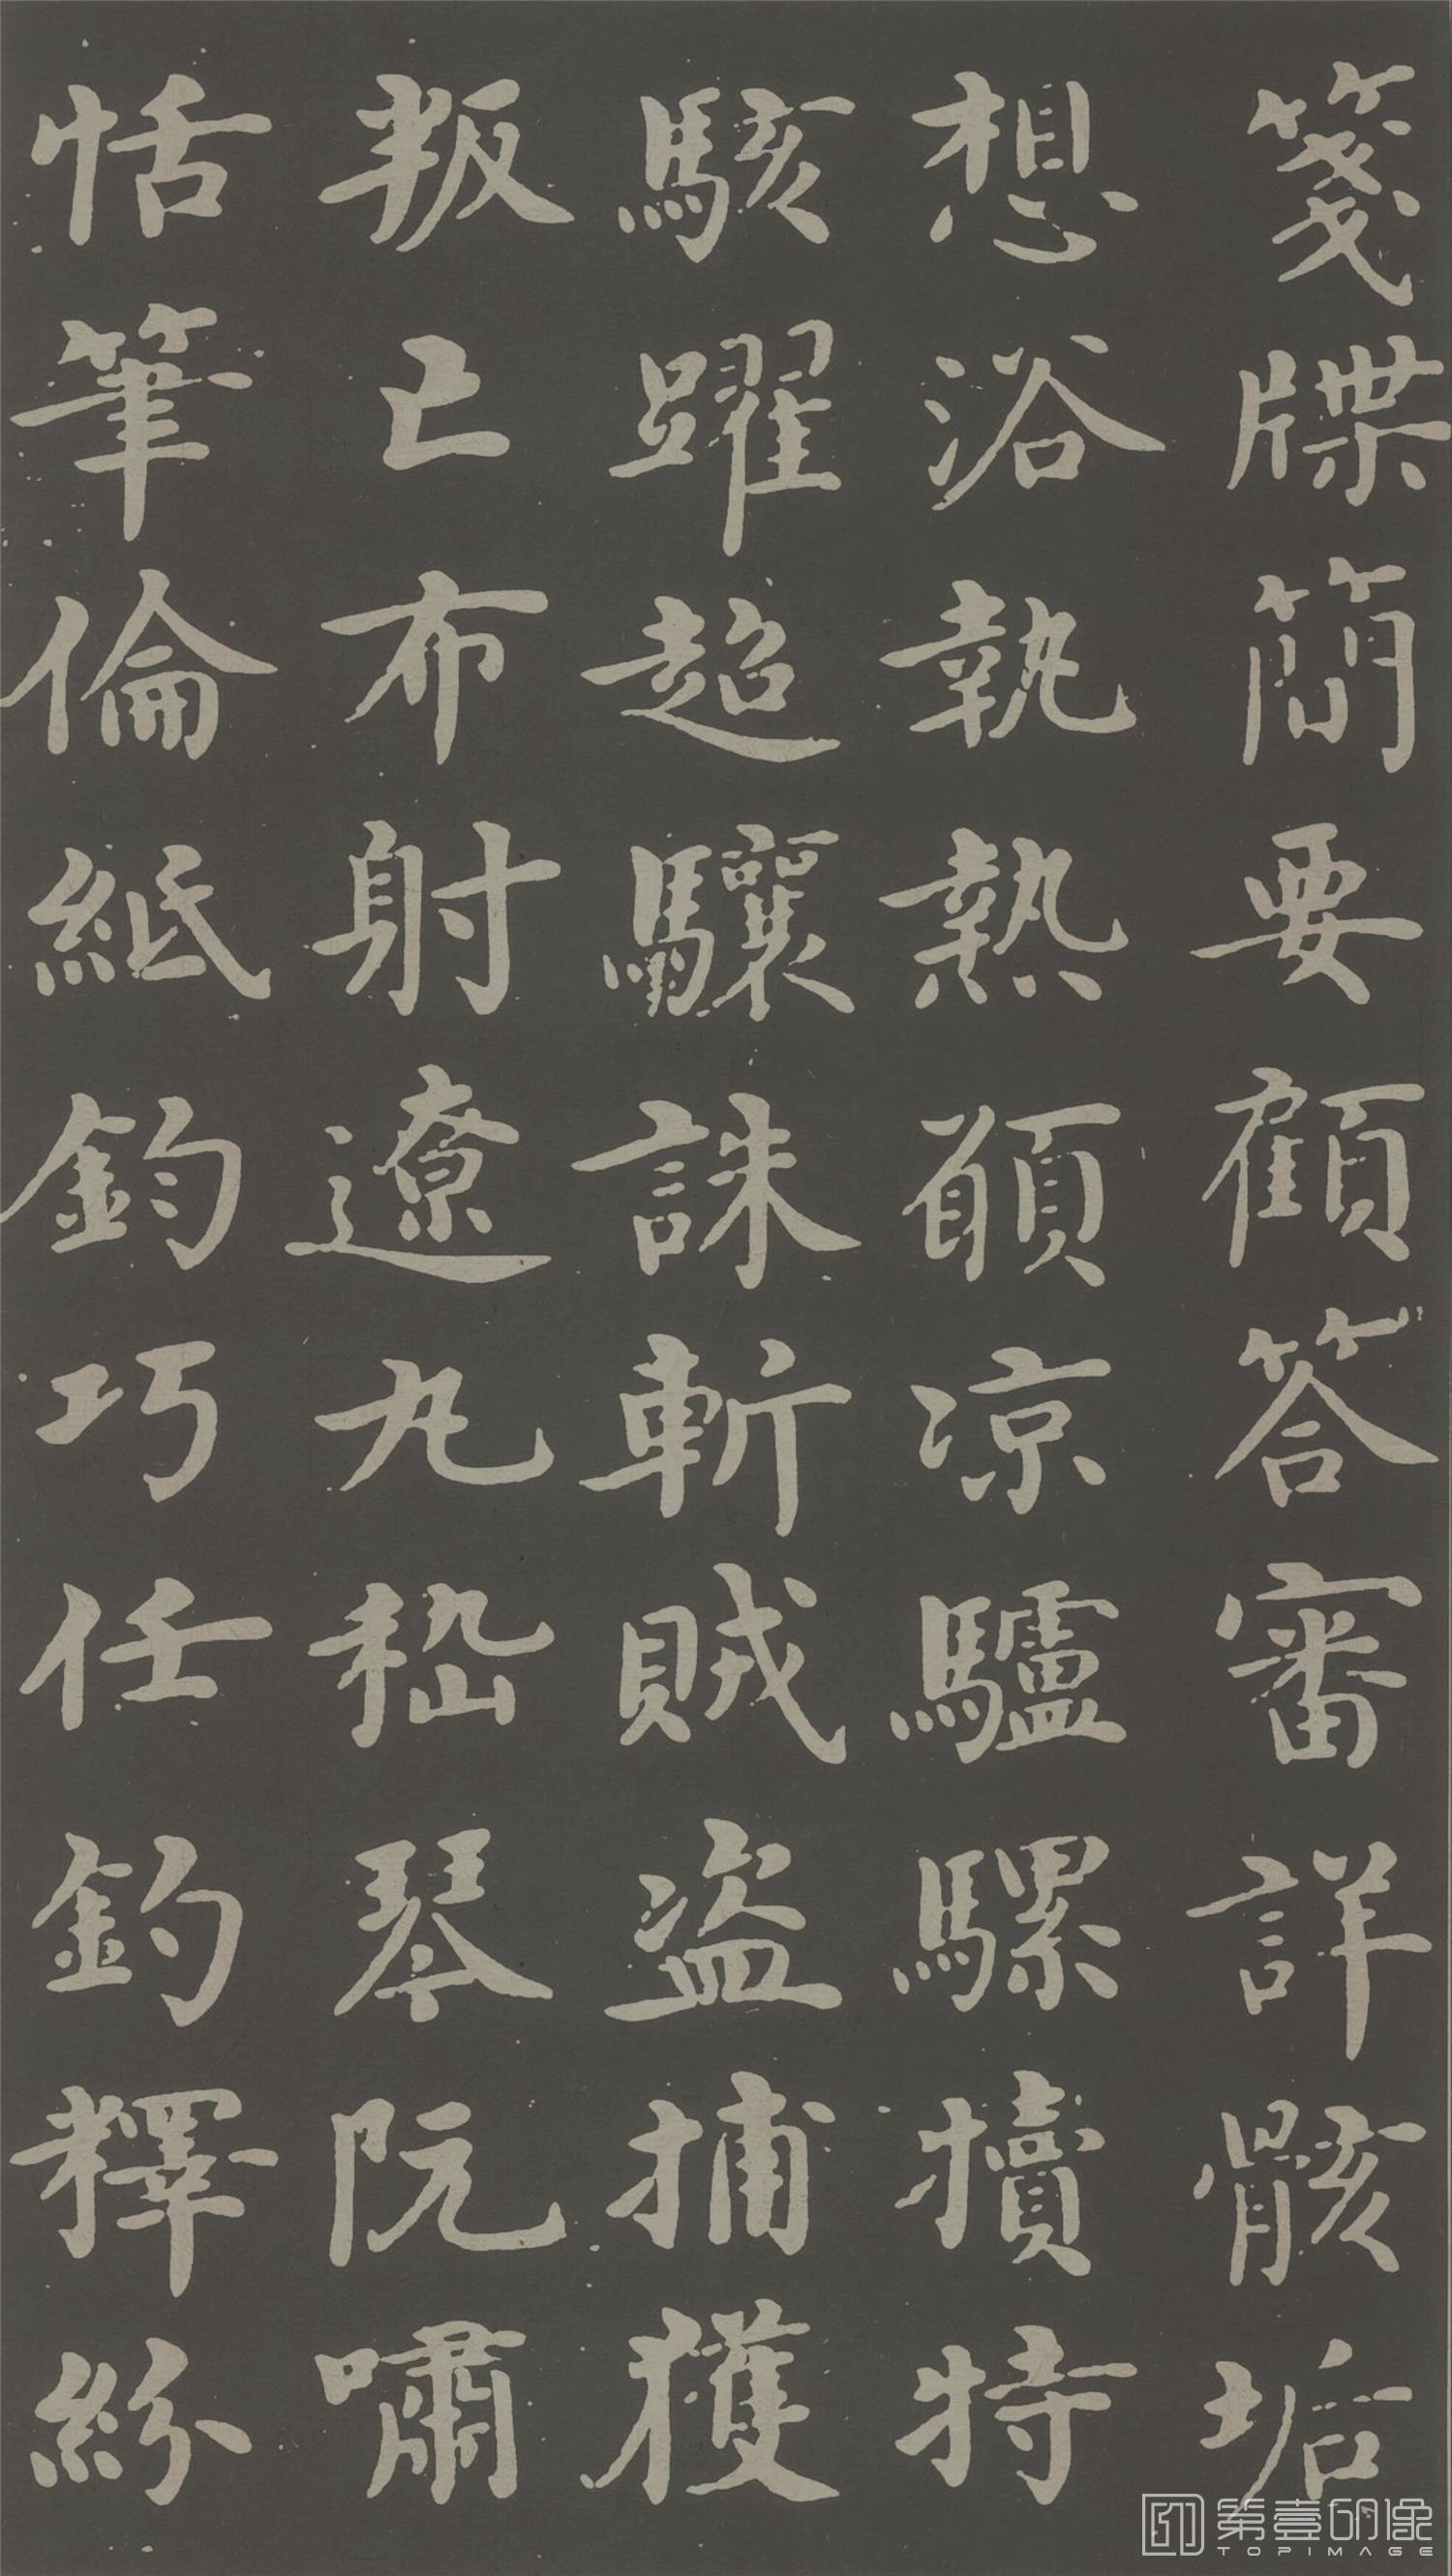 箋牒簡要顧答審詳骸垢
想浴執熱願凉驢騾犢特
駭躍超驤誅斬賊盗捕獲
叛亡布射遼丸嵇琴阮嘯
恬筆倫紙鈞巧任釣釋紛
第壹印像
TOPIMAGE